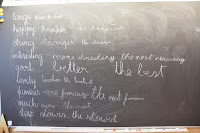 large larger the largest
happy happier the happiest
strong stronger the strongest
interesting more interesting the most interesting
good better the best
lovely
famous more famous the most famous
much more the most
slow slower the slowest